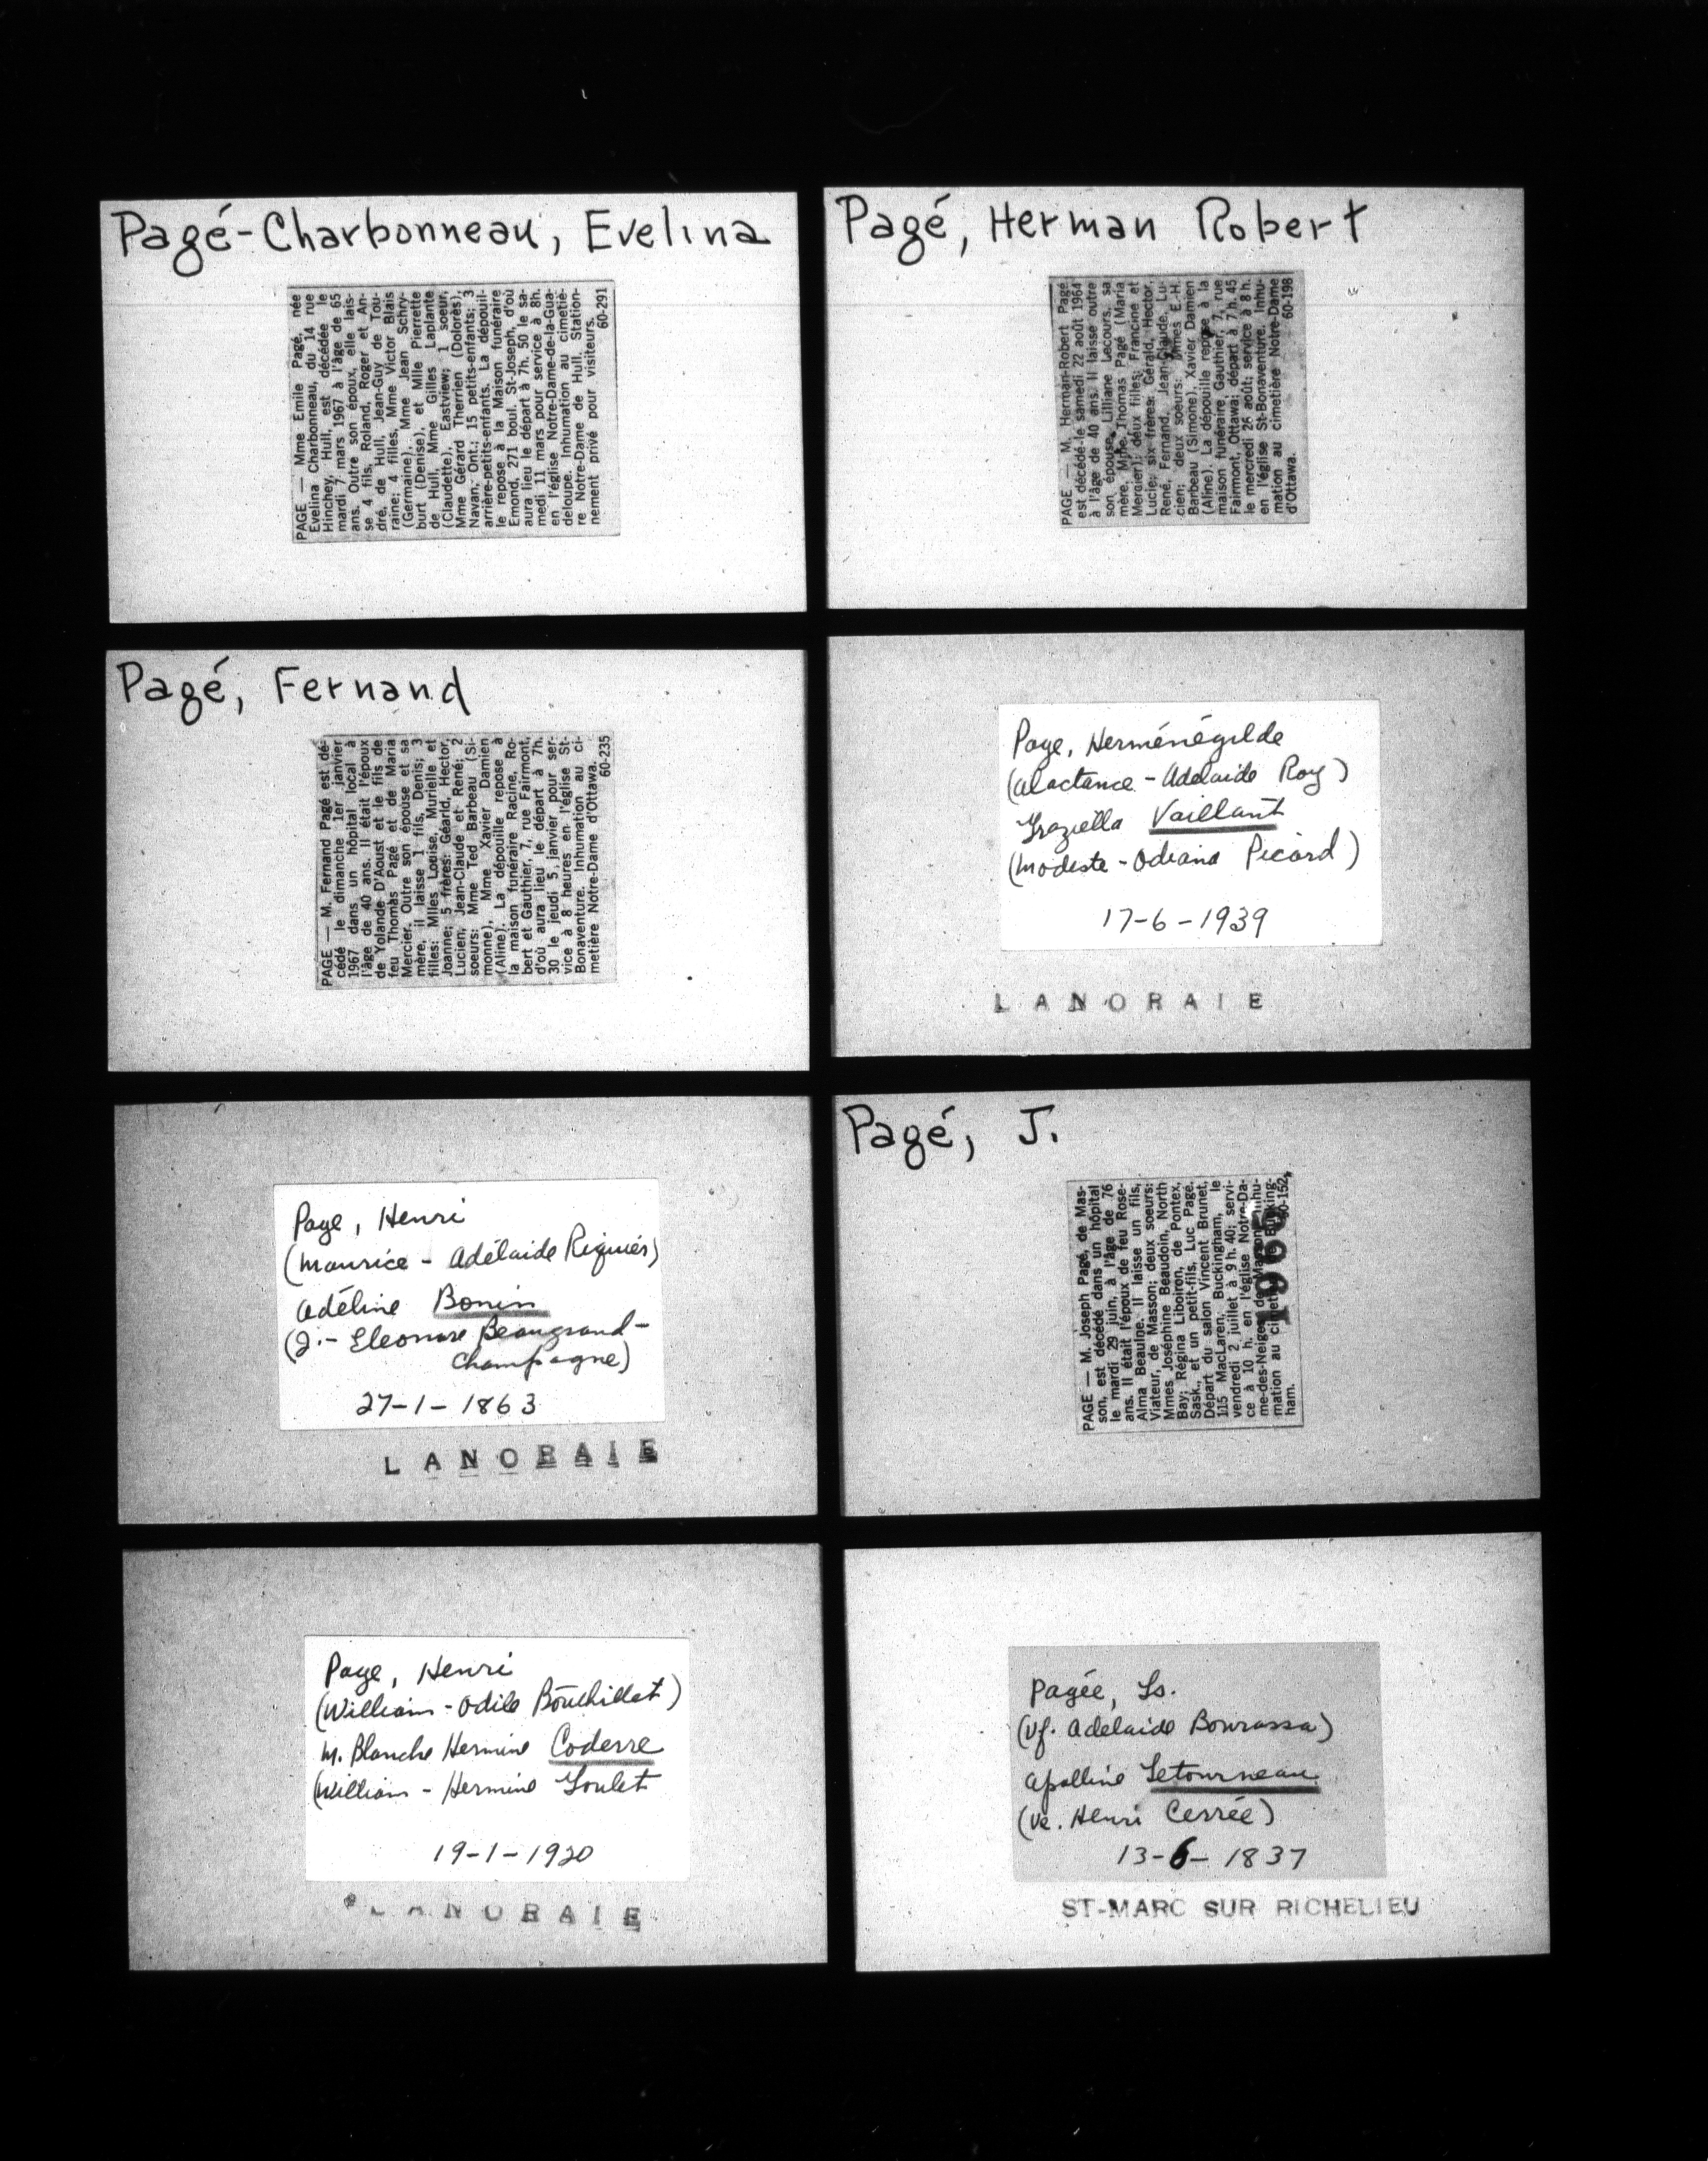 Pagé-Charbonneau, Evelina
PAGE — Mme Emile Pagé, née
Evelina Charbonneau, du 14 rue
Hinchey, Hull, est décédée le
mardi 7 mars 1967 à l'âge de 65
ans. Outre son époux, elle lais-
se 4 fils, Roland, Roger et An-
dré, de Hull, Jean-Guy de Tou-
raine; 4 filles, Mme Victor Blais
(Germaine), Mme Jean Schry-
burt (Denise), et Mlle Pierrette
de Hull, Mme Gilles Laplante
(Claudette), Eastview; 1 soeur,
Mme Gérard Therrien (Dolorès),
Navan, Ont.; 15 petits-enfants; 3
arrière-petits-enfants. La dépouil-
le repose à la Maison funéraire
Emond, 271 boul. St-Joseph, d'où
aura lieu le départ à 7h. 50 le sa-
medi 11 mars pour service à 8h.
en l'église Notre-Dame-de-la-Gua-
deloupe. Inhumation au cimetiè-
re Notre-Dame de Hull. Station-
nement privé pour visiteurs.
60-291
Pagé, Herman Robert
PAGE — M. Herman-Robert Pagé
est décédé le samedi 22 août 1964
à l'âge de 40 ans. Il laisse outre
son épouse, Lilliane Lecours, sa
mère, Mme Thomas Pagé (Maria
Mercier); deux filles: Francine et
Lucie; six frères: Gérald, Hector,
René, Fernand, Jean-Claude, Lu-
cien; deux soeurs: Mmes E.-H.
Barbeau (Simone), Xavier Damien
(Aline). La dépouille repose à la
maison funéraire Gauthier, 7, rue
Fairmont, Ottawa; départ à 7 h. 45
le mercredi 26 août; service à 8 h.
en l'église St-Bonaventure. Inhu-
mation au cimetière Notre-Dame
d'Ottawa.
60-198
Pagé, Fernand
PAGE — M. Fernand Pagé est dé-
cédé le dimanche 1er janvier
1967 dans un hôpital local à
l'âge de 40 ans. Il était l'époux
de Yolande D'Aoust et le fils de
feu Thomas Pagé et de Maria
Mercier. Outre son épouse et sa
mère, il laisse 1 fils, Denis; 3
filles: Mlles Louise, Murielle et
Joanne; 5 frères: Géarld, Hector,
Lucien, Jean-Claude et René; 2
soeurs: Mme Ted Barbeau (Si-
monne), Mme Xavier Damien
(Aline). La dépouille repose à
la maison funéraire Racine, Ro-
bert et Gauthier, 7, rue Fairmont,
d'où aura lieu le départ à 7h.
30 le jeudi 5 janvier pour ser-
vice à 8 heures en l'église St-
Bonaventure. Inhumation au ci-
metière Notre-Dame d'Ottawa.
60-235
Page, Herménégilde
(Alactance - Adelaide Roy)
Graziella Vaillant
(Modeste - Odiana Picard)
17-6-1939
LANORAIE
Page, Henri
(Maurice - Adélaide Riguiés)
Adéline Bonin
(J.- Eleonore Beaugrand-
Champagne)
27-1-1863
LANORAIE
Pagé, J.
PAGE — M. Joseph Pagé, de Mas-
son, est décédé dans un hôpital
le mardi 29 juin, à l'âge de 76
ans. Il était l'époux de feu Rose-
Alma Beaulne. Il laisse un fils,
Viateur, de Masson; deux soeurs:
Mmes Joséphine Beaudoin, North
Bay; Régina Liboiron, de Pontex,
Sask., et un petit-fils, Luc Pagé.
Départ du salon Vincent Brunet,
115 MacLaren, Buckingham, le
vendredi 2 juillet à 9 h. 40; servi-
ce à 10 h. en l'église Notre-Da-
me-des-Neiges de Masson. Inhu-
mation au cimetière Bucking-
ham.
60-152
Page, Henri
(William - Odile Bouthillet)
M. Blanche Hermine Coderre
(William - Hermine Goulet
19-1-1920
LANORAIE
Pagée, Ls.
(Vf. Adelaide Bourassa)
Apolline Letourneau
(Ve. Henri Cerrée)
13-6-1837
ST-MARC SUR RICHELIEU